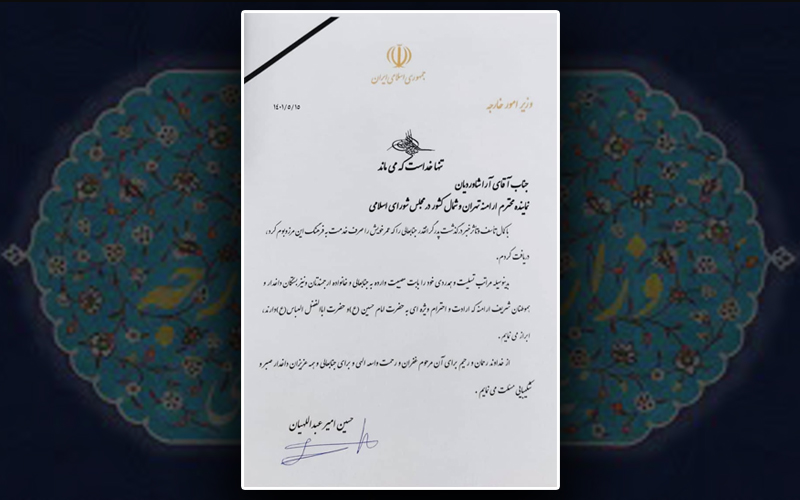 جمهوری اسلامی ایران
وزیر امور خارجه
۱۴۰۱/۵/۱۵
تنها خداست که می ماند
جناب آقای آرا شاوردیان
نماینده محترم ارامنه تهران و شمال کشور در مجلس شورای اسلامی
با کمال تاسف و تاثر خبر درگذشت پدر گرانقدر جنابعالی را که عمر خویش را صرف خدمت به فرهنگ این مرز و بوم کرد،
دریافت کردم.
بدینوسیله مراتب تسلیت و همدردی خود را بابت مصیبت وارده به جنابعالی و خانواده ارجمندتان و نیز بستگان داغدار و
هموطنان شریف ارامنه که ارادت و احترام ویژه ای به حضرت امام حسین (ع) و حضرت اباالفضل العباس(ع) دارند،
ابراز می نمایم.
از خداوند رحمان و رحیم برای آن مرحوم غفران و رحمت واسعه الهی و برای جنابعالی و همه عزیزان داغدار صبر و
شکیبایی مسئلت می نمایم.
حسین امیرعبداللهیان